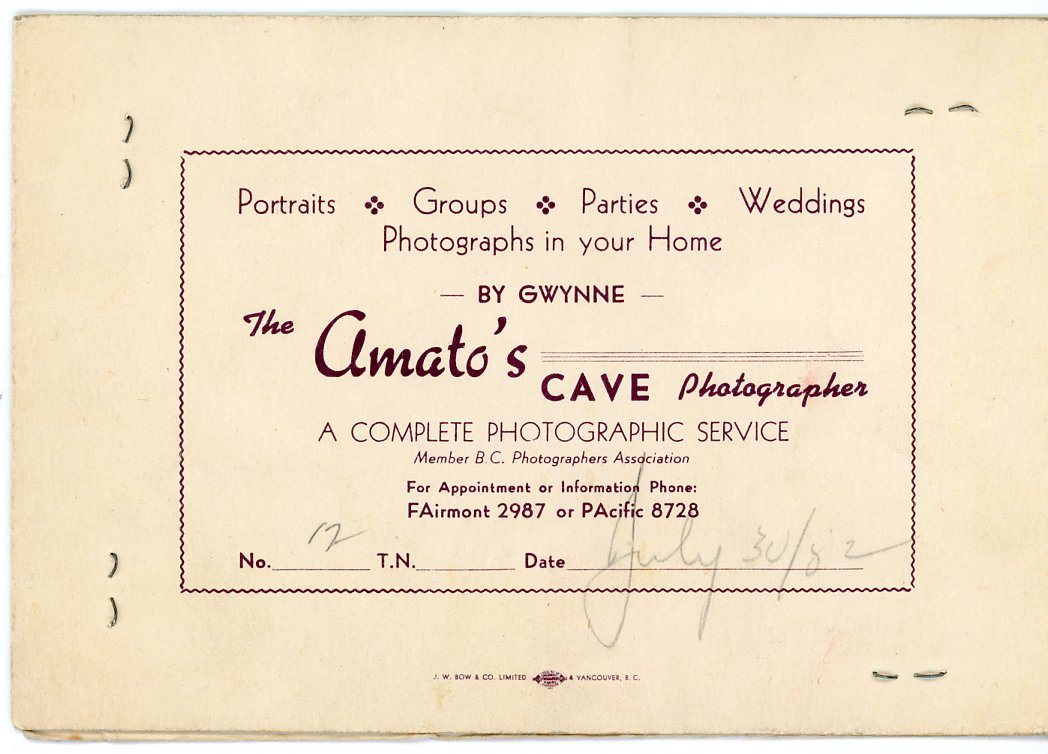 Portraits Groups Parties Weddings
Photographs in your Home
— BY GWYNNE —
The Amato's
CAVE Photographer
A COMPLETE PHOTOGRAPHIC SERVICE
Member B.C. Photographers Association
For Appointment or Information Phone:
FAirmont 2987 or PAcific 8728
No. 12 T.N. Date July 30/
J. W. BOW & CO. LIMITED VANCOUVER, B. C.